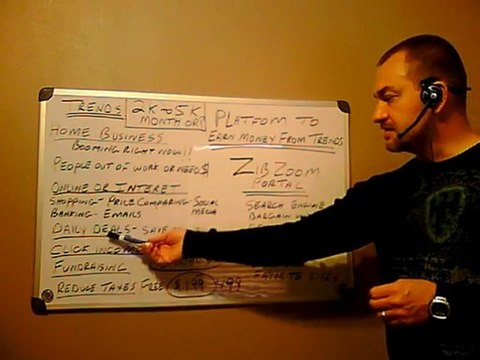 TRENDS 2K TO 5K
MONTH OR?
PLATFOM TO
EARN MONEY FROM TRENDS
HOME BUSINESS
BOOMING RIGHT NOW!!
PEOPLE OUT OF WORK OR NEED $
ZIBZOOM
PORTAL
ONLINE OR INTERET
SHOPPING - PRICE COMPARING - SOCIAL
MEDIA
BANKING - EMAILS
SEARCH ENGINE
BARGAIN
DAILY DEALS - SAVE
CLICK INCOME
FUNDRAISING
REDUCE TAXES FREE